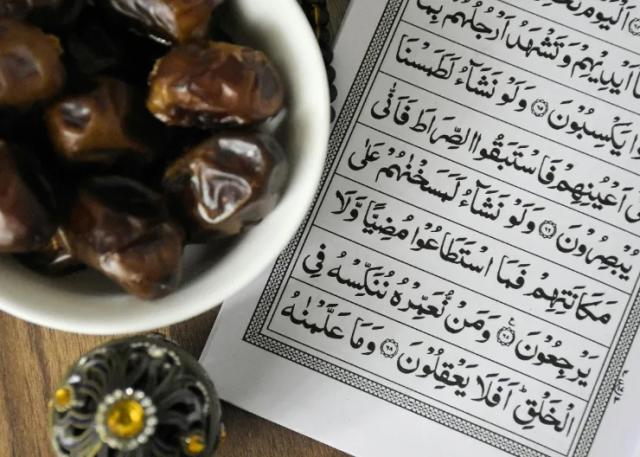 اَلْيَوْمَ نَخْ
اَيْدِيْهِمْ وَتَشْهَدُ اَرْجُلُهُمْ بِمَا
يَكْسِبُوْنَ ۝ وَلَوْ نَشَآءُ لَطَمَسْنَا
اَعْيُنِهِمْ فَاسْتَبَقُوا الصِّرَاطَ فَاَنّٰى
يُبْصِرُوْنَ ۝ وَلَوْ نَشَآءُ لَمَسَخْنٰهُمْ عَلٰى
مَكَانَتِهِمْ فَمَا اسْتَطَاعُوْا مُضِيًّا وَّلَا
يَرْجِعُوْنَ ۝ وَمَنْ نُّعَمِّرْهُ نُنَكِّسْهُ فِى
الْخَلْقِ ؕ اَفَلَا يَعْقِلُوْنَ ۝ وَمَا عَلَّمْنٰهُ